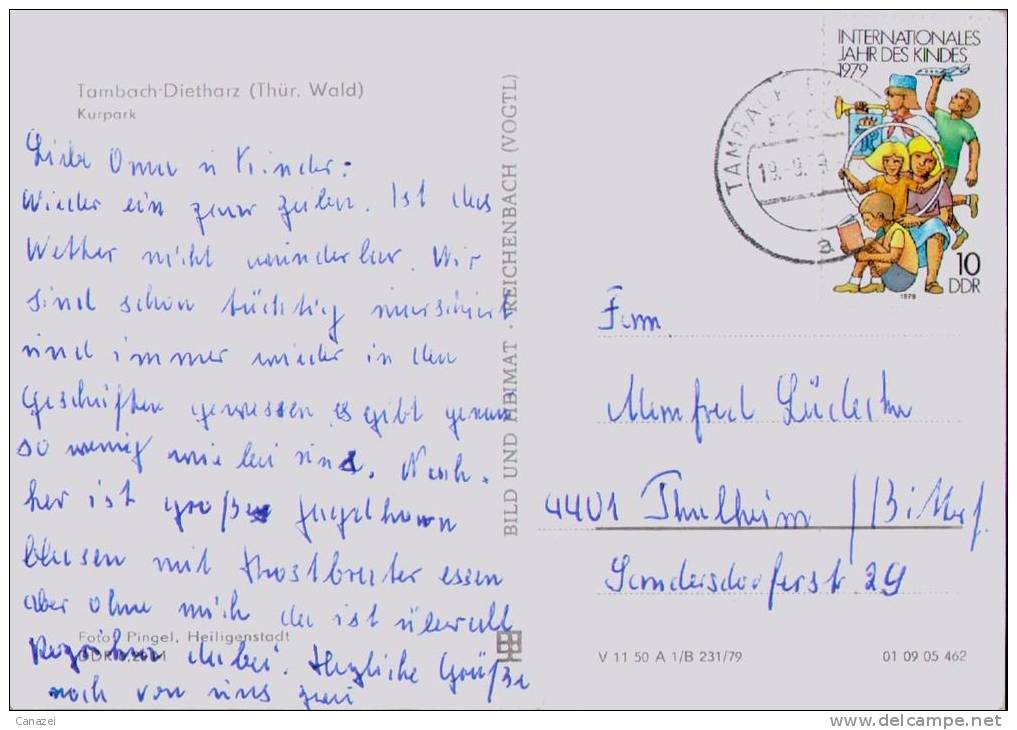 INTERNATIONALES
JAHR DES KINDES
1979
10
DDR
1979
TAMBACH-
19.-9.
a
Tambach-Dietharz (Thür. Wald)
Kurpark
Liebe Oma u Kinder.
Wieder ein paar Zeilen. Ist das
Wetter nicht wunderbar. Wir
sind schon tüchtig marschiert
und immer wieder in den
Geschäften gewessen es gibt genau
so wenig wie bei uns. Nach-
her ist großes Jagdhorn
blasen mit Rostbräter essen
aber ohne mich da ist überall
dabei. Herzliche Grüße
noch von uns zwei
Foto: Pingel, Heiligenstadt
BILD UND HEIMAT · REICHENBACH (VOGTL)
Fam
Manfred
4401 Thalheim / Bitterf.
Sandersdorferstr 29
V 11 50 A 1/B 231/79
01 09 05 462
Canazei
www.delcampe.net